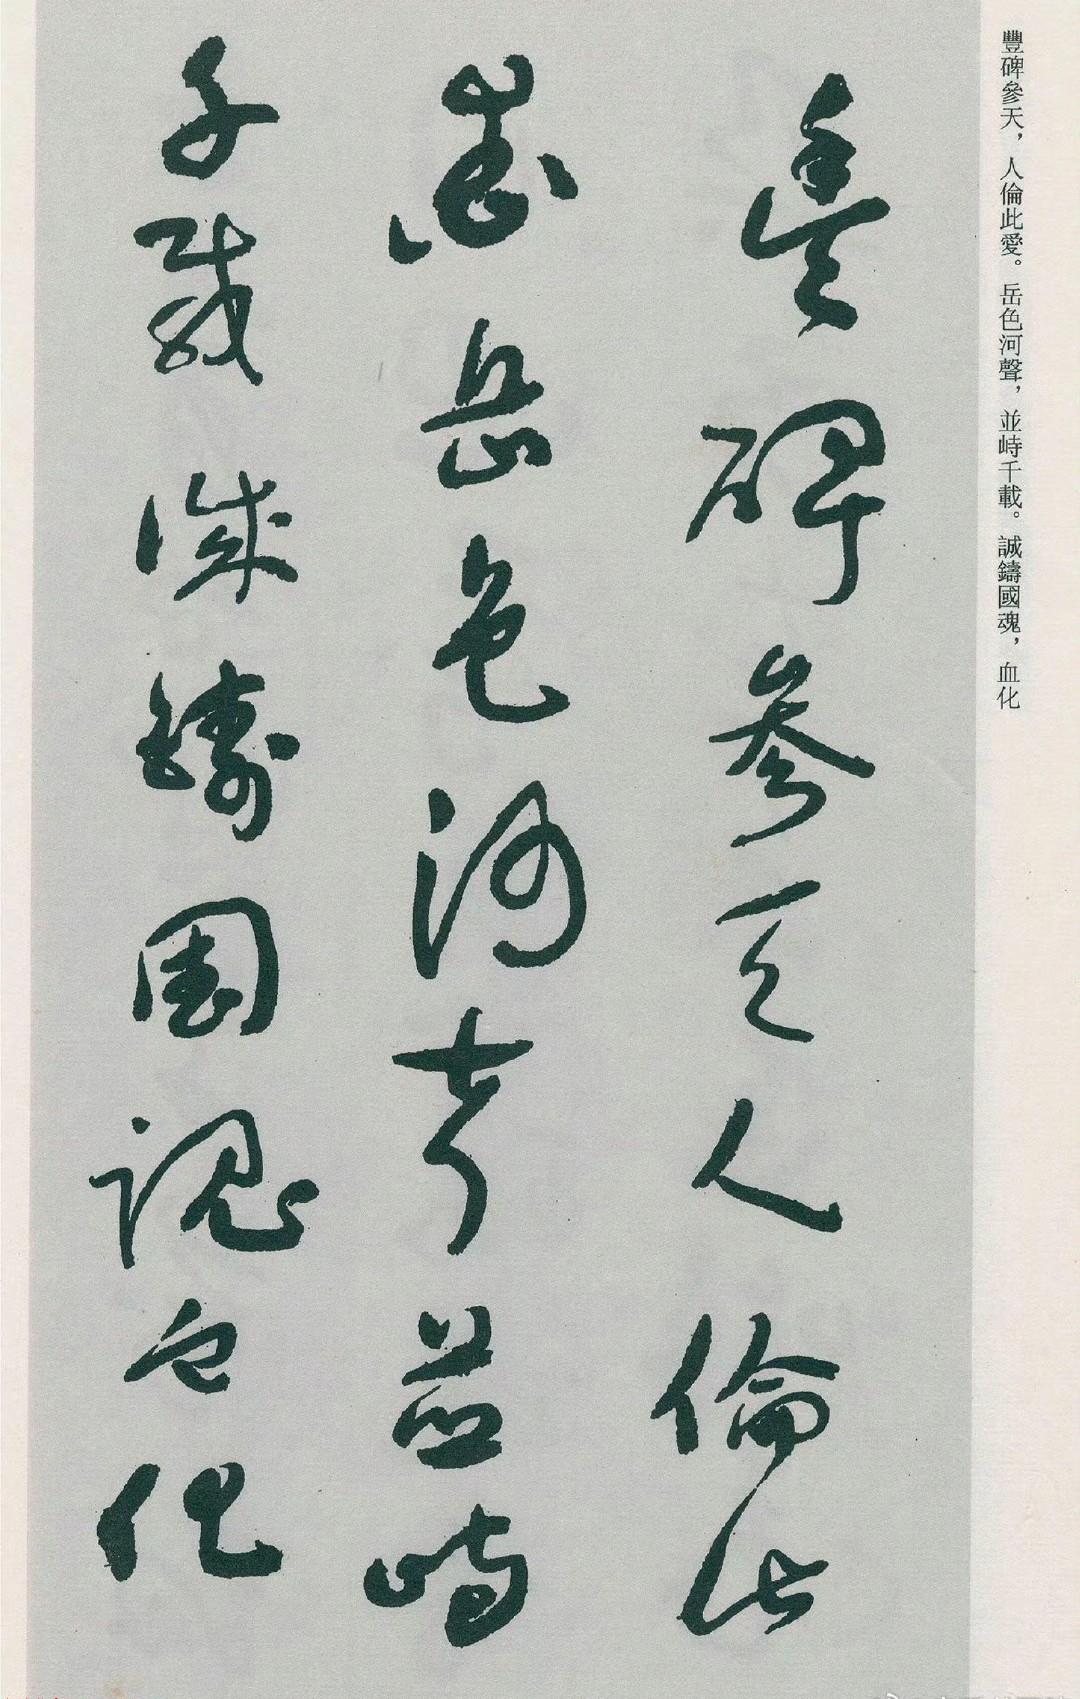 豐碑參天，人倫此愛。岳色河聲，並峙千載。誠鑄國魂，血化
豐碑參天人倫此
愛岳色河聲並峙
千載誠鑄國魂血化